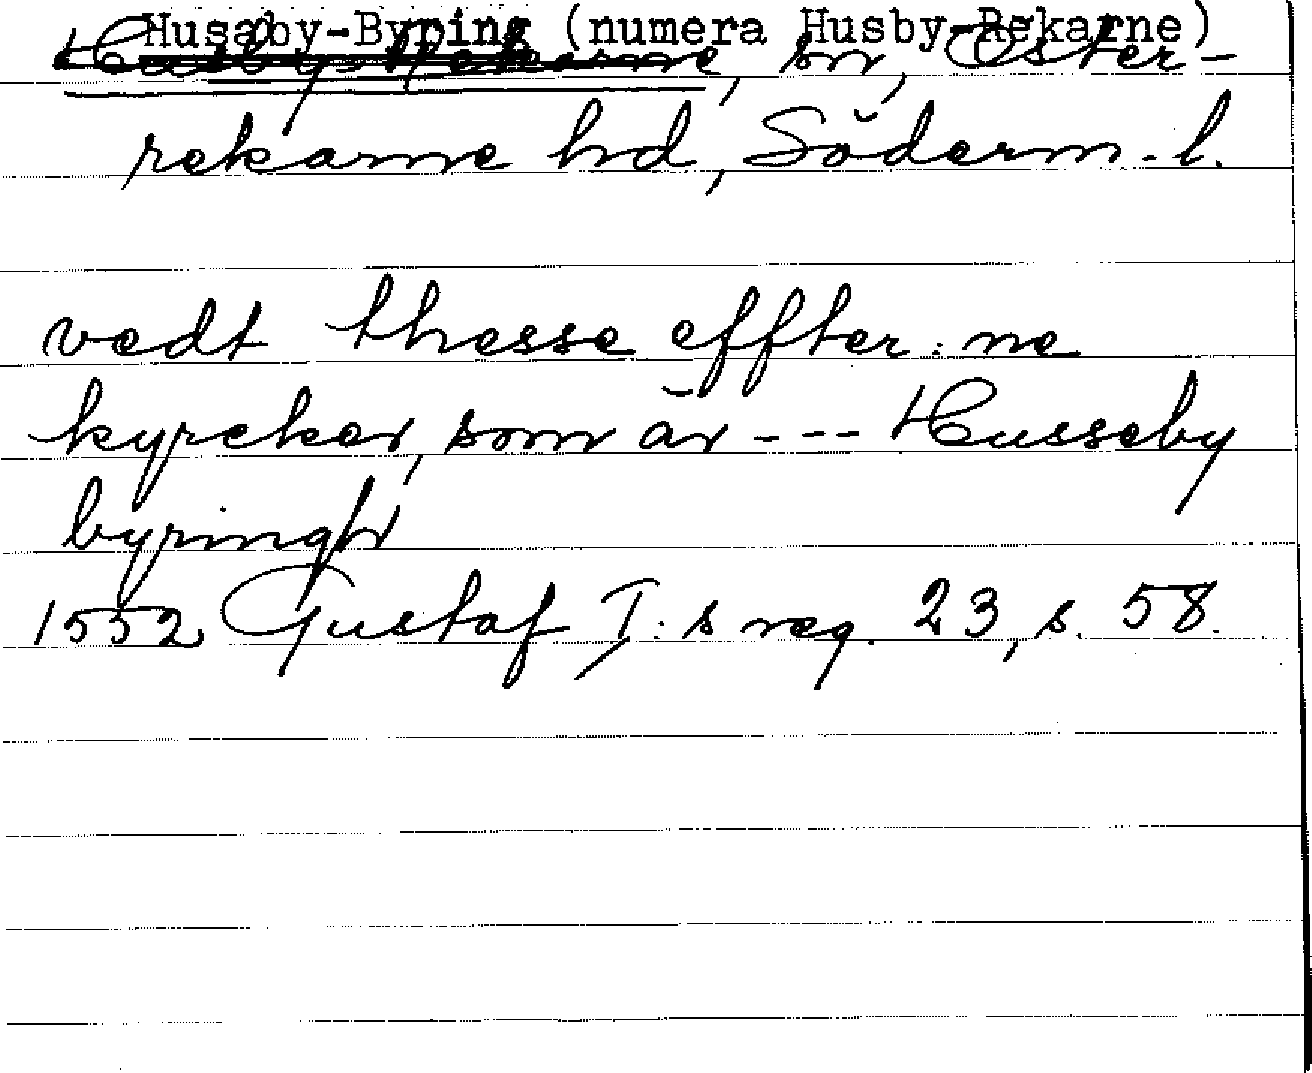 Husaby-Byring (numera Husby-Rekarne)
Husby-Rekarne, sn, Öster-
rekarne hd, Söderm. l.
vedt thesse effter:ne
kyrcker, som är --- Husseby
byringh
1552 Gustaf I:s reg. 23, s. 58.